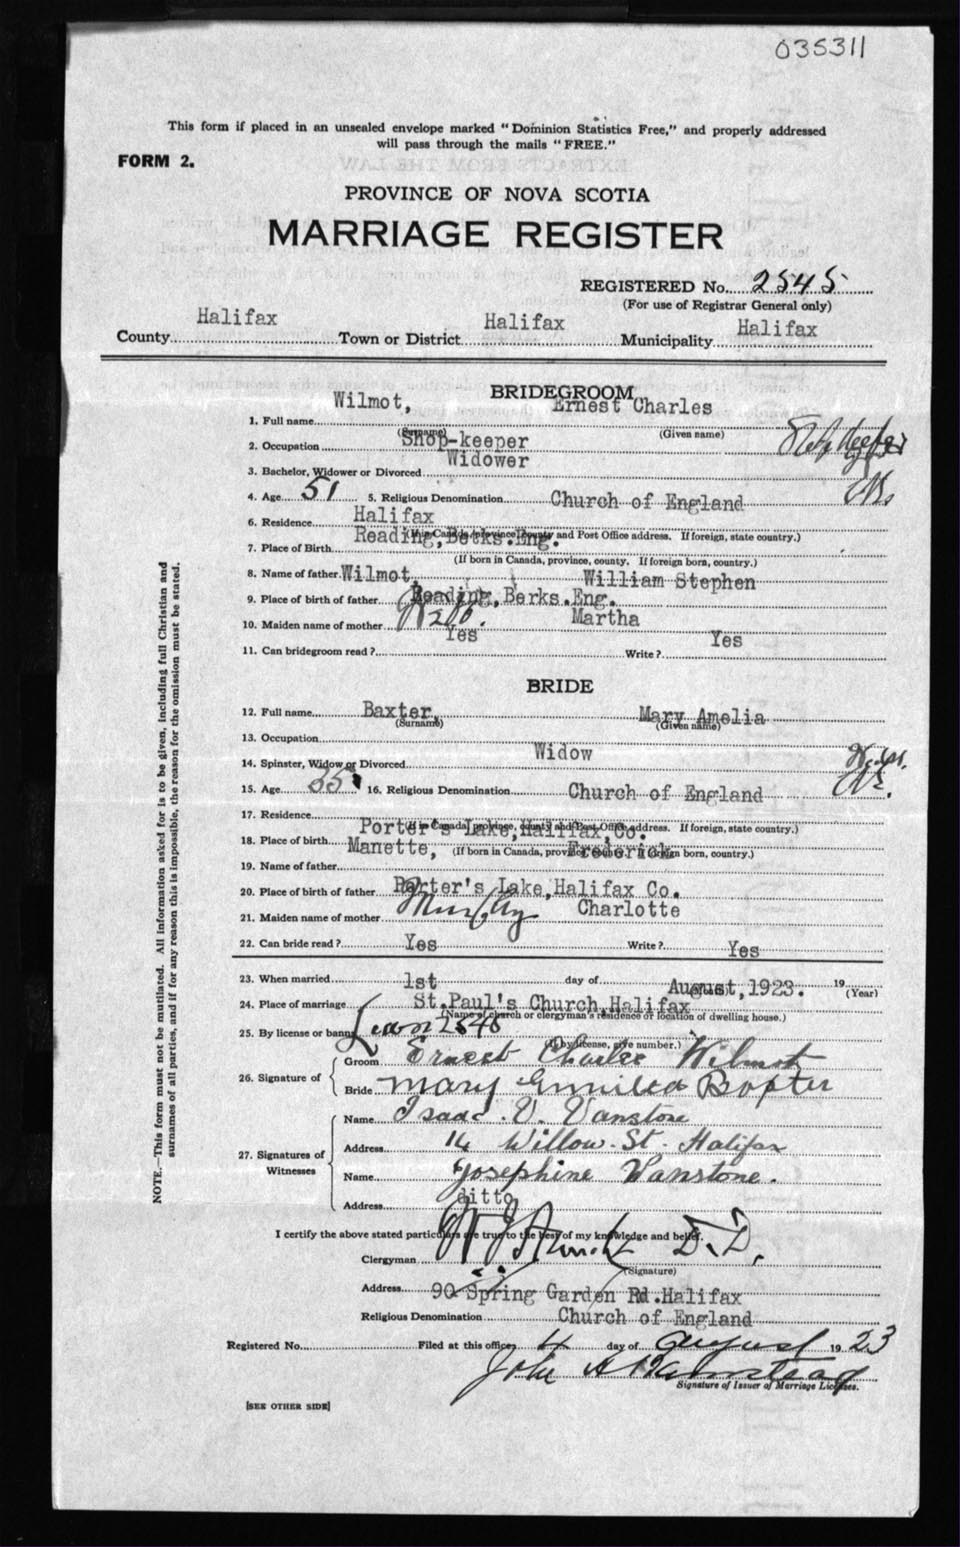 035311
This form if placed in an unsealed envelope marked "Dominion Statistics Free," and properly addressed
will pass through the mails "FREE."
FORM 2.
PROVINCE OF NOVA SCOTIA
MARRIAGE REGISTER
REGISTERED No. 2545
(For use of Registrar General only)
County Halifax Town or District Halifax Municipality Halifax
BRIDEGROOM
1. Full name Wilmot, Ernest Charles
(Surname) (Given name)
2. Occupation Shop-keeper
3. Bachelor, Widower or Divorced Widower
4. Age 51 5. Religious Denomination Church of England
6. Residence Halifax
(If in Canada, province, county and Post Office address. If foreign, state country.)
7. Place of Birth Reading, Berks. Eng.
(If born in Canada, province, county. If foreign born, country.)
8. Name of father Wilmot, William Stephen
9. Place of birth of father Reading, Berks. Eng.
10. Maiden name of mother Martha
11. Can bridegroom read? Yes Write? Yes
BRIDE
12. Full name Baxter, Mary Amelia
(Surname) (Given name)
13. Occupation
14. Spinster, Widow or Divorced Widow
15. Age 35 16. Religious Denomination Church of England
17. Residence
(If in Canada, province, county and Post Office address. If foreign, state country.)
18. Place of birth Porter's Lake, Halifax, Co.
(If born in Canada, province, county. If foreign born, country.)
19. Name of father Manette, Frederick
20. Place of birth of father Porter's Lake, Halifax Co.
21. Maiden name of mother Murphy Charlotte
22. Can bride read? Yes Write? Yes
23. When married 1st day of August, 1923. 19
(Year)
24. Place of marriage St. Paul's Church, Halifax
(Name of church or clergyman's residence or location of dwelling house.)
25. By license or banns 2546
(If by license, give number.)
26. Signature of
Groom Ernest Charles Wilmot
Bride Mary Baxter
27. Signatures of Witnesses
Name Isaac V. Vanstone
Address 14 Willow St. Halifax
Name Josephine Vanstone.
Address ditto
I certify the above stated particulars are true to the best of my knowledge and belief.
Clergyman D.D.
(Signature)
Address 90 Spring Garden Rd. Halifax
Religious Denomination Church of England
Registered No. Filed at this office 4 day of August 1923
John A
Signature of Issuer of Marriage Licenses.
[SEE OTHER SIDE]
NOTE.—This form must not be mutilated. All information asked for is to be given, including full Christian and
surnames of all parties, and if for any reason this is impossible, the reason for the omission must be stated.